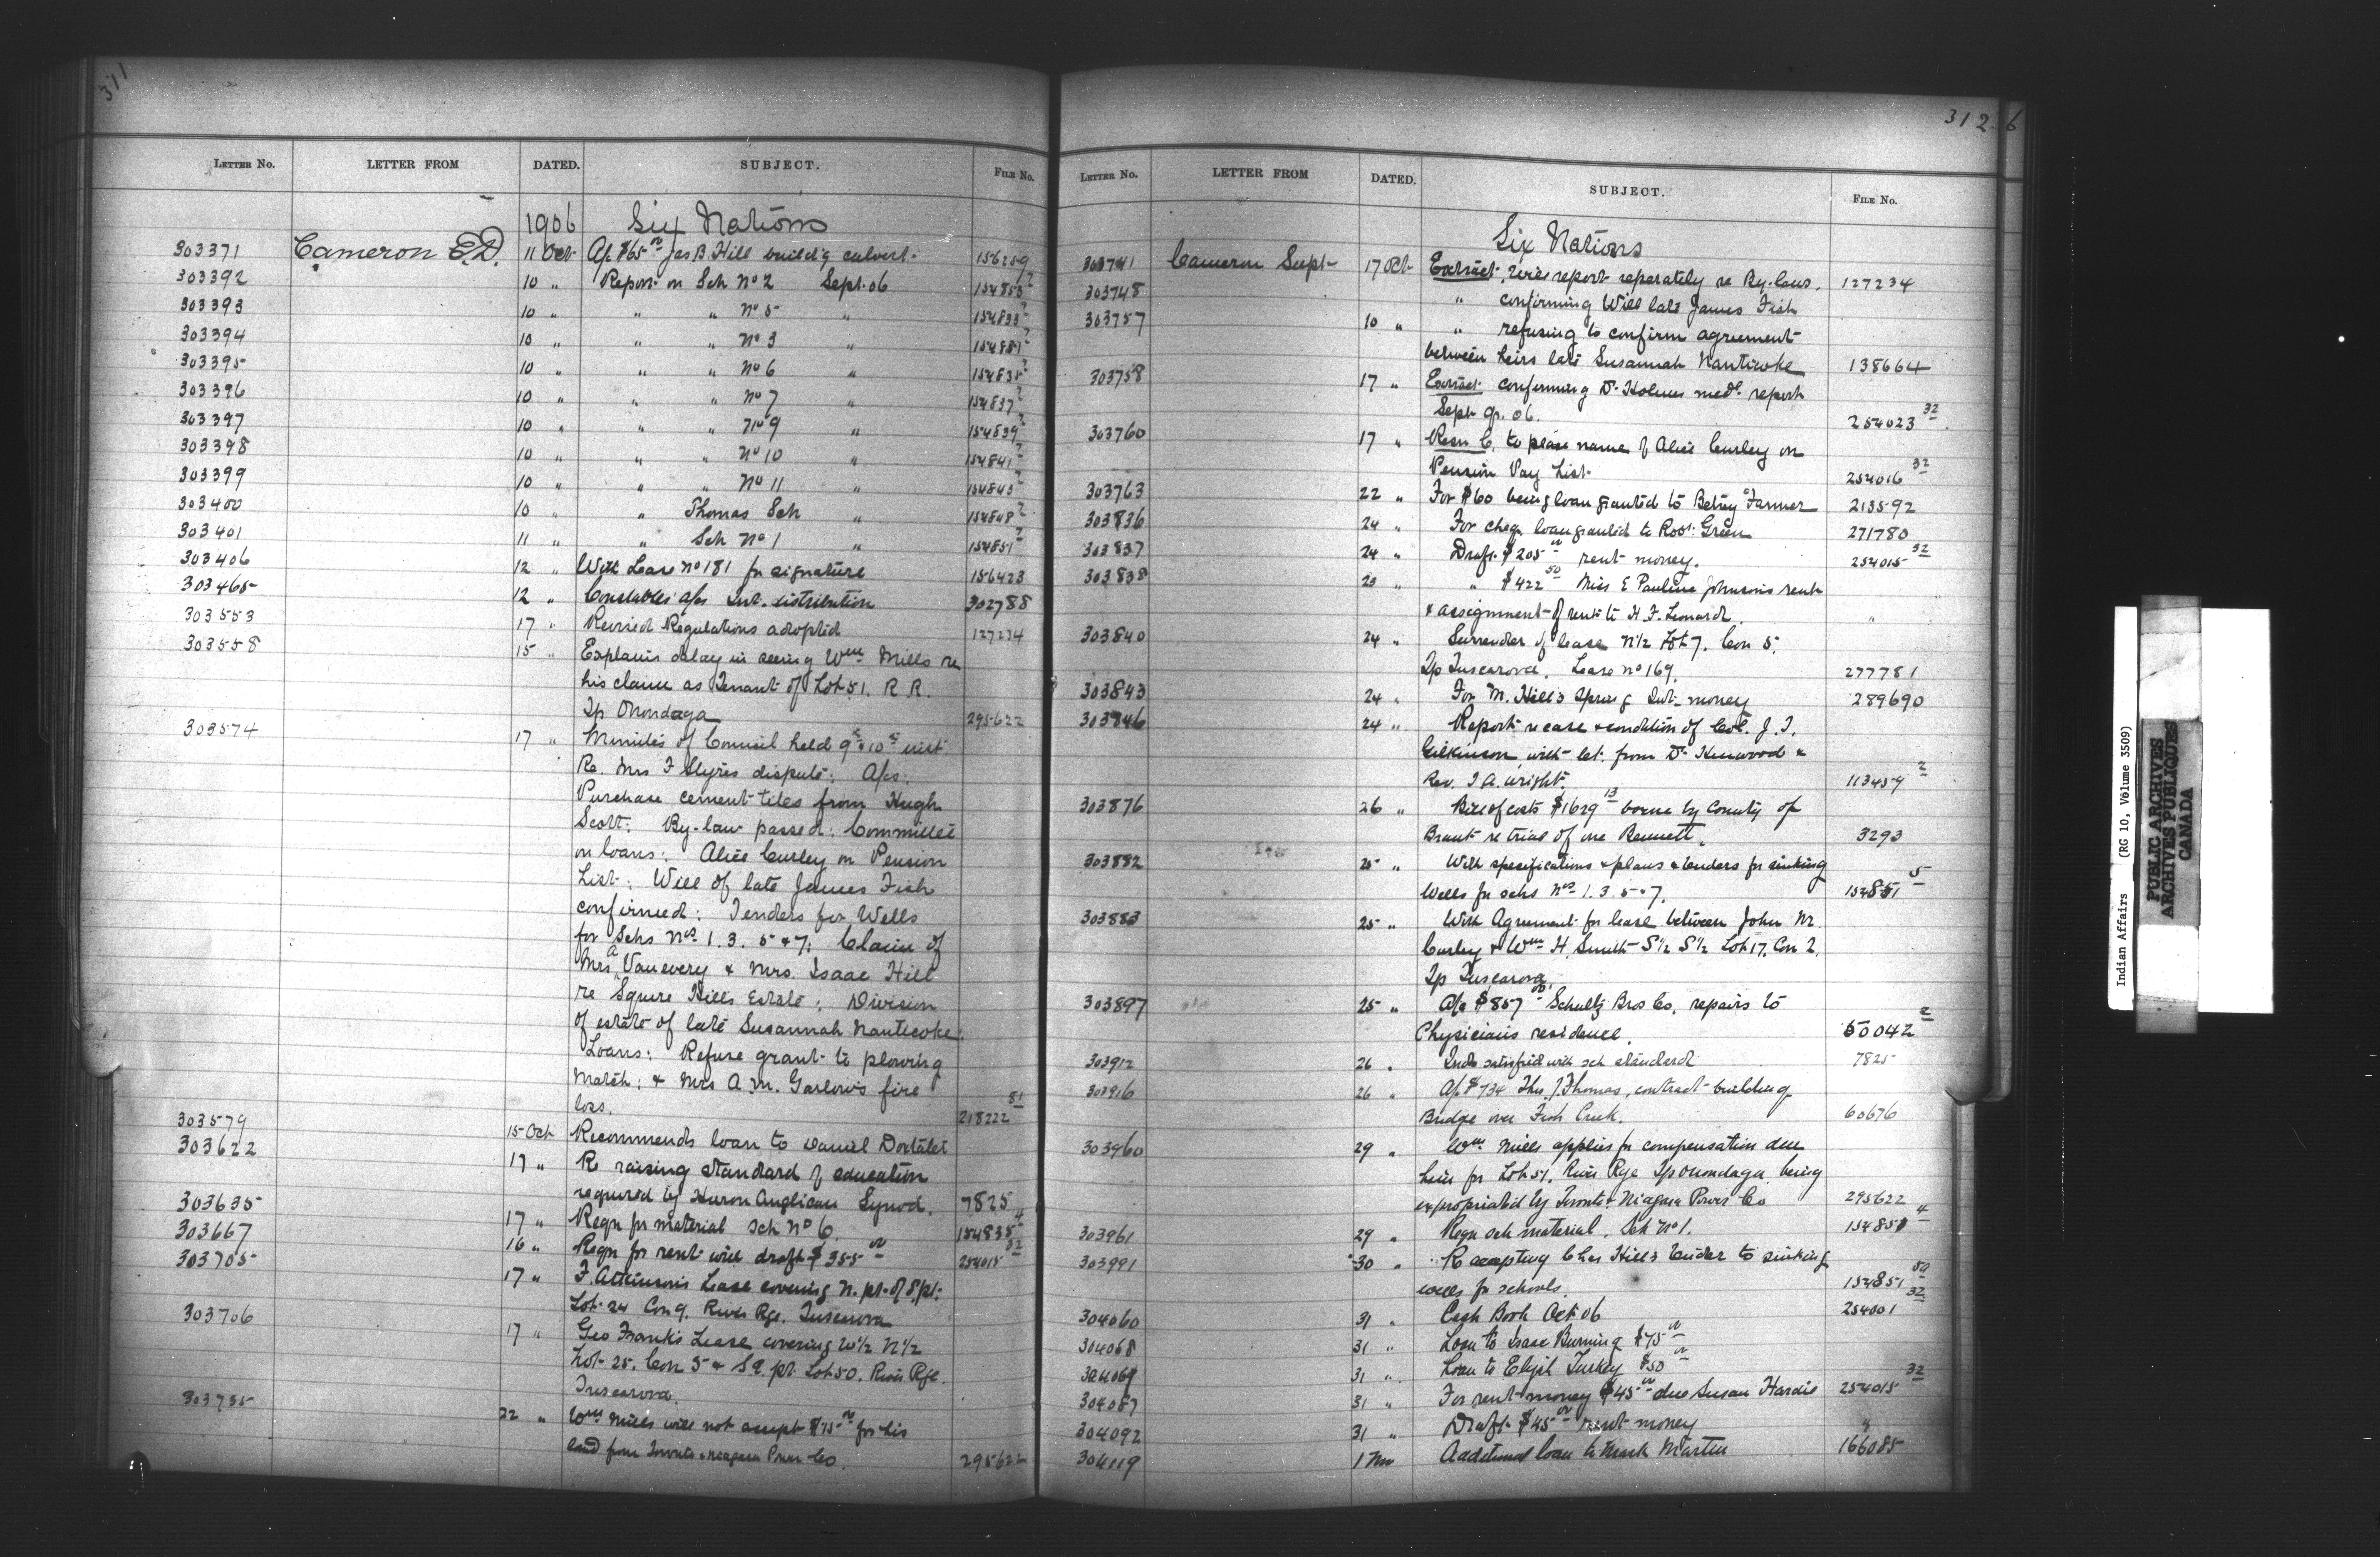 311
LETTER NO. LETTER FROM DATED. SUBJECT. FILE NO.
1906 Six Nations
303371 Cameron E.D. 11 Oct A/c $65 00 Jas B. Hill build'g culvert. 156259
303392 10 " Report on Sch No 2 Sept. 06 154853 2
303393 10 " " " No 5 " 154833 2
303394 10 " " " No 3 " 154831 2
303395 10 " " " No 6 " 154835 2
303396 10 " " " No 7 " 154837 2
303397 10 " " " No 9 " 154839 2
303398 10 " " " No 10 " 154841 2
303399 10 " " " No 11 " 154843 2
303400 10 " " Thomas Sch " 154848 2
303401 11 " " Sch No 1 " 154851 2
303406 12 " With Lease No 181 for signature 156423
303465 12 " Constables a/cs Int. distribution 302788
303553 17 " Revised Regulations adopted 127234
303558 15 " Explains delay in seeing Wm Mills re
his claim as Tenant of Lot 51. R R.
Tp Onondaga 295622
303574 17 " Minutes of Council held 9th & 10th inst.
Re. Mrs F Styres dispute: A/cs:
Purchase cement tiles from Hugh
Scott: By-law passed: Committee
on loans: Alice Curley on Pension
List: Will of late James Fish
confirmed: Tenders for Wells
for Schs Nos 1. 3. 5 & 7: Claim of
Mrs A Vanevery & Mrs. Isaac Hill
re Squire Hill's Estate: Division
of estate of late Susannah Nanticoke:
Loans: Refuse grant to plowing
Match: & Mrs A. M. Garlow's fire
loss. 218222 81
303579 15 Oct Recommends loan to Daniel Doxtater
303622 17 " Re raising standard of education
required by Huron Anglican Synod. 7825
303635 17 " Reqn for material Sch No 6. 154835 4
303667 16 " Reqn for rent with draft $355 00 254015 32
303705 17 " F. Atkinson's Lease covering N. pt. of S. pt.
Lot 24 Con 9. River Rge. Tuscarora
303706 17 " Geo Frank's Lease covering W 1/2 N 1/2
Lot 25. Con 5 & S.E. pt. Lot 50. River Rge.
Tuscarora.
303735 22 " Wm Mills will not accept $75 00 for his
land from Toronto & Niagara Power Co. 295622
312
LETTER NO. LETTER FROM DATED. SUBJECT. FILE NO.
Six Nations
303741 Cameron Supt 17 Oct Extract. Will report seperately re By-laws. 127234
303748 " confirming Will late James Fish
303757 10 " " refusing to confirm agreement
between heirs late Susannah Nanticoke 138664
303758 17 " Extract confirming Dr Holmes medl report
Sept qr. 06. 254023 32
303760 17 " Resn C. to place name of Alice Curley on
Pension Pay List 254016 32
303763 22 " For $60 being loan granted to Betsey Farmer 213592
303836 24 " For chq. loan granted to Robt Green 271780
303837 24 " Draft $205 00 rent money. 254015 32
303838 23 " " $422 50 Miss E Pauline Johnson's rent
& assignment of rent to H. F. Leonard. "
303840 24 " Surrender of lease N 1/2 Lot 7. Con 5.
Tp Tuscarora. Lease No 169. 277781
303843 24 " For M. Hill's Spring Int. money 289690
303846 24 " Report re case & condition of Col. J. T.
Gilkinson with let. from Dr Henwood &
Rev. T. A. Wright. 113459 2
303876 26 " Bill of costs $1629 13 borne by County of
Brant re trial of one Bennett. 3293
303882 25 " With specifications & plans & tenders for sinking
Wells for schs Nos 1. 3. 5 & 7. 154851 5
303883 25 " With Agreement for lease between John M.
Curley & Wm H. Smith S 1/2 S 1/2 Lot 17. Con 2.
Tp Tuscarora.
303897 25 " A/c $857 00 Schultz Bros Co. repairs to
Physician's residence. 50042 2
303912 26 " Inds satisfied with sch standard 7825
303916 26 " A/c $734 Thos. J Thomas, contract building
Bridge over Fish Creek. 60676
303960 29 " Wm Mills applies for compensation due
him for Lot 51. River Rge Tp Onondaga being
expropriated by Toronto & Niagara Power Co 295622
303961 29 " Reqn sch material. Sch No 1. 154851 4
303991 30 " Re accepting Chas Hill's tender to sinking
wells for schools. 154851 50
304060 31 " Cash Book Oct 06 254001 32
304068 31 " Loan to Isaac Burning $75 00
304069 31 " Loan to Elijah Turkey $50 00
304087 31 " For rent money $45 00 due Susan Hardie 254015 32
304092 31 " Draft $45 00 rent money "
304119 1 Nov Additional loan to Mark Martin 166085
Indian Affairs (RG 10, Volume 3509)
PUBLIC ARCHIVES
ARCHIVES PUBLIQUES
CANADA